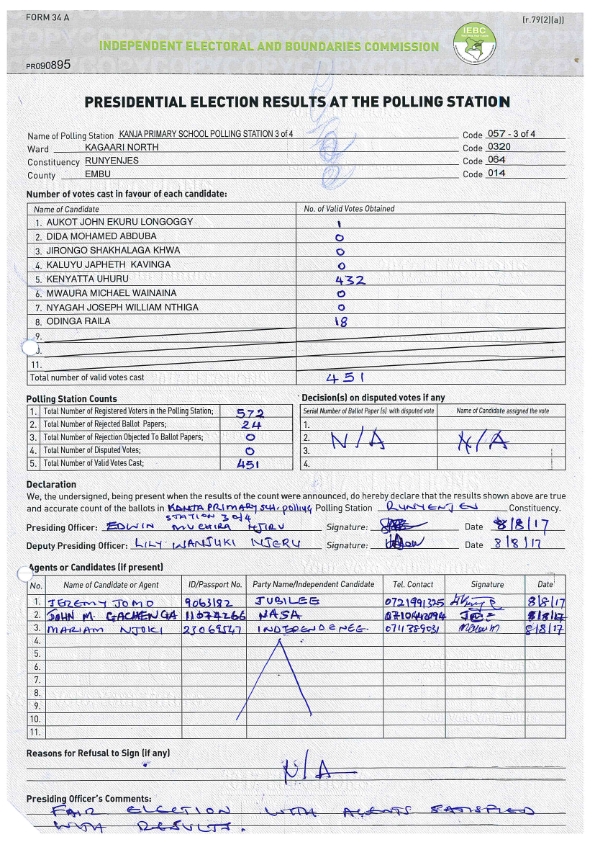 FORM 34 A
[r.79(2)(a)]
IEBC
INDEPENDENT ELECTORAL AND BOUNDARIES COMMISSION
PR090895
PRESIDENTIAL ELECTION RESULTS AT THE POLLING STATION
Name of Polling Station KANJA PRIMARY SCHOOL POLLING STATION 3 of 4 Code 057 - 3 of 4
Ward KAGAARI NORTH Code 0320
Constituency RUNYENJES Code 064
County EMBU Code 014
Number of votes cast in favour of each candidate:
Name of Candidate No. of Valid Votes Obtained
1. AUKOT JOHN EKURU LONGOGGY 1
2. DIDA MOHAMED ABDUBA 0
3. JIRONGO SHAKHALAGA KHWA 0
4. KALUYU JAPHETH KAVINGA 0
5. KENYATTA UHURU 432
6. MWAURA MICHAEL WAINAINA 0
7. NYAGAH JOSEPH WILLIAM NTHIGA 0
8. ODINGA RAILA 18
9.
11.
Total number of valid votes cast 451
Polling Station Counts
1. Total Number of Registered Voters in the Polling Station; 572
2. Total Number of Rejected Ballot Papers; 24
3. Total Number of Rejection Objected To Ballot Papers; 0
4. Total Number of Disputed Votes; 0
5. Total Number of Valid Votes Cast; 451
Decision(s) on disputed votes if any
Serial Number of Ballot Paper (s) with disputed vote Name of Candidate assigned the vote
1.
2. N/A N/A
3.
4.
Declaration
We, the undersigned, being present when the results of the count were announced, do hereby declare that the results shown above are true
and accurate count of the ballots in KANJA PRIMARY SCH. polling Polling Station RUNYENJES Constituency.
STATION 3 of 4
Presiding Officer: EDWIN MUCHIRA NJIRU Signature: Date 8/8/17
Deputy Presiding Officer: LILY WANJUKI NJERU Signature: Date 8/8/17
Agents or Candidates (if present)
No. Name of Candidate or Agent ID/Passport No. Party Name/Independent Candidate Tel. Contact Signature Date
1. JEREMY JOMO 9063182 JUBILEE 0721991325 8/8/17
2. JOHN M. GACHENGA NASA 8/8/17
3. MARIAM NJOKI 23069547 0711389031 8/8/17
4.
5.
6.
7.
8.
9.
10.
11.
Reasons for Refusal to Sign (if any)
N/A
Presiding Officer's Comments:
FAIR ELECTION WITH AGENTS SATISFIED
WITH RESULTS.